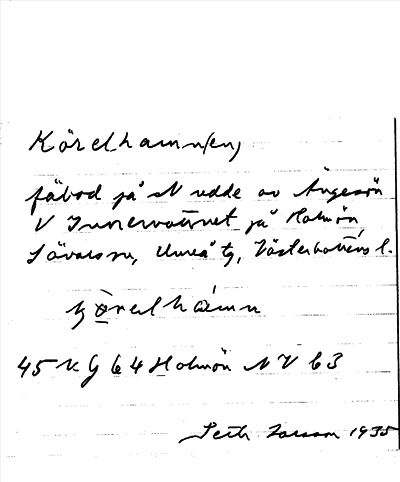 Körelhamn(en)
fäbod på N udde av Ängesön
V Innervattnet på Holmön
Sävars sn, Umeå tg, Västerbottens l.
hamn
45 K G 64 Holmön N V 63
Larsson 1935